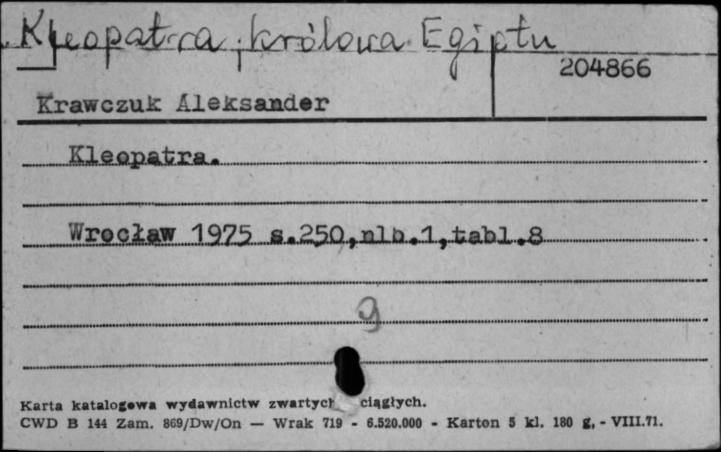 Kleopatra, królowa Egiptu
204866
Krawczuk Aleksander
Kleopatra.
Wrocław 1975 s.250,nlb.1,tabl.8
9
Karta katalogowa wydawnictw zwartych ciągłych.
CWD B 144 Zam. 869/Dw/On — Wrak 719 - 6.520.000 - Karton 5 kl. 180 g, - VIII.71.